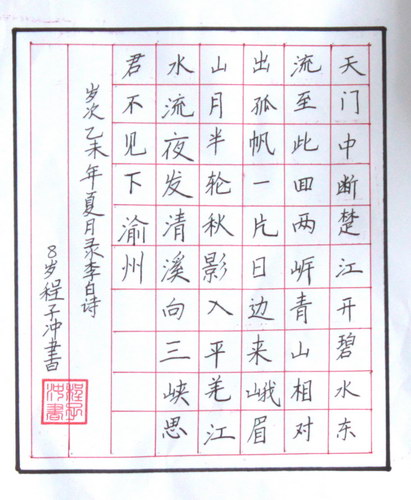 天门中断楚江开碧水东
流至此回两岸青山相对
出孤帆一片日边来峨眉
山月半轮秋影入平羌江
水流夜发清溪向三峡思
君不见下渝州
岁次乙未年夏月录李白诗
8岁程子冲书
程子
冲书